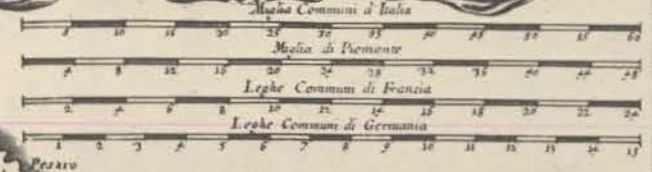 Miglia Communi d'Italia
5 10 15 20 25 30 35 40 45 50 55 60
Miglia di Piemonte
4 8 12 16 20 24 28 32 36 40 44 48
Leghe Communi di Francia
2 4 6 8 10 12 14 16 18 20 22 24
Leghe Communi di Germania
1 2 3 4 5 6 7 8 9 10 11 12 13 14 15
Pesaro